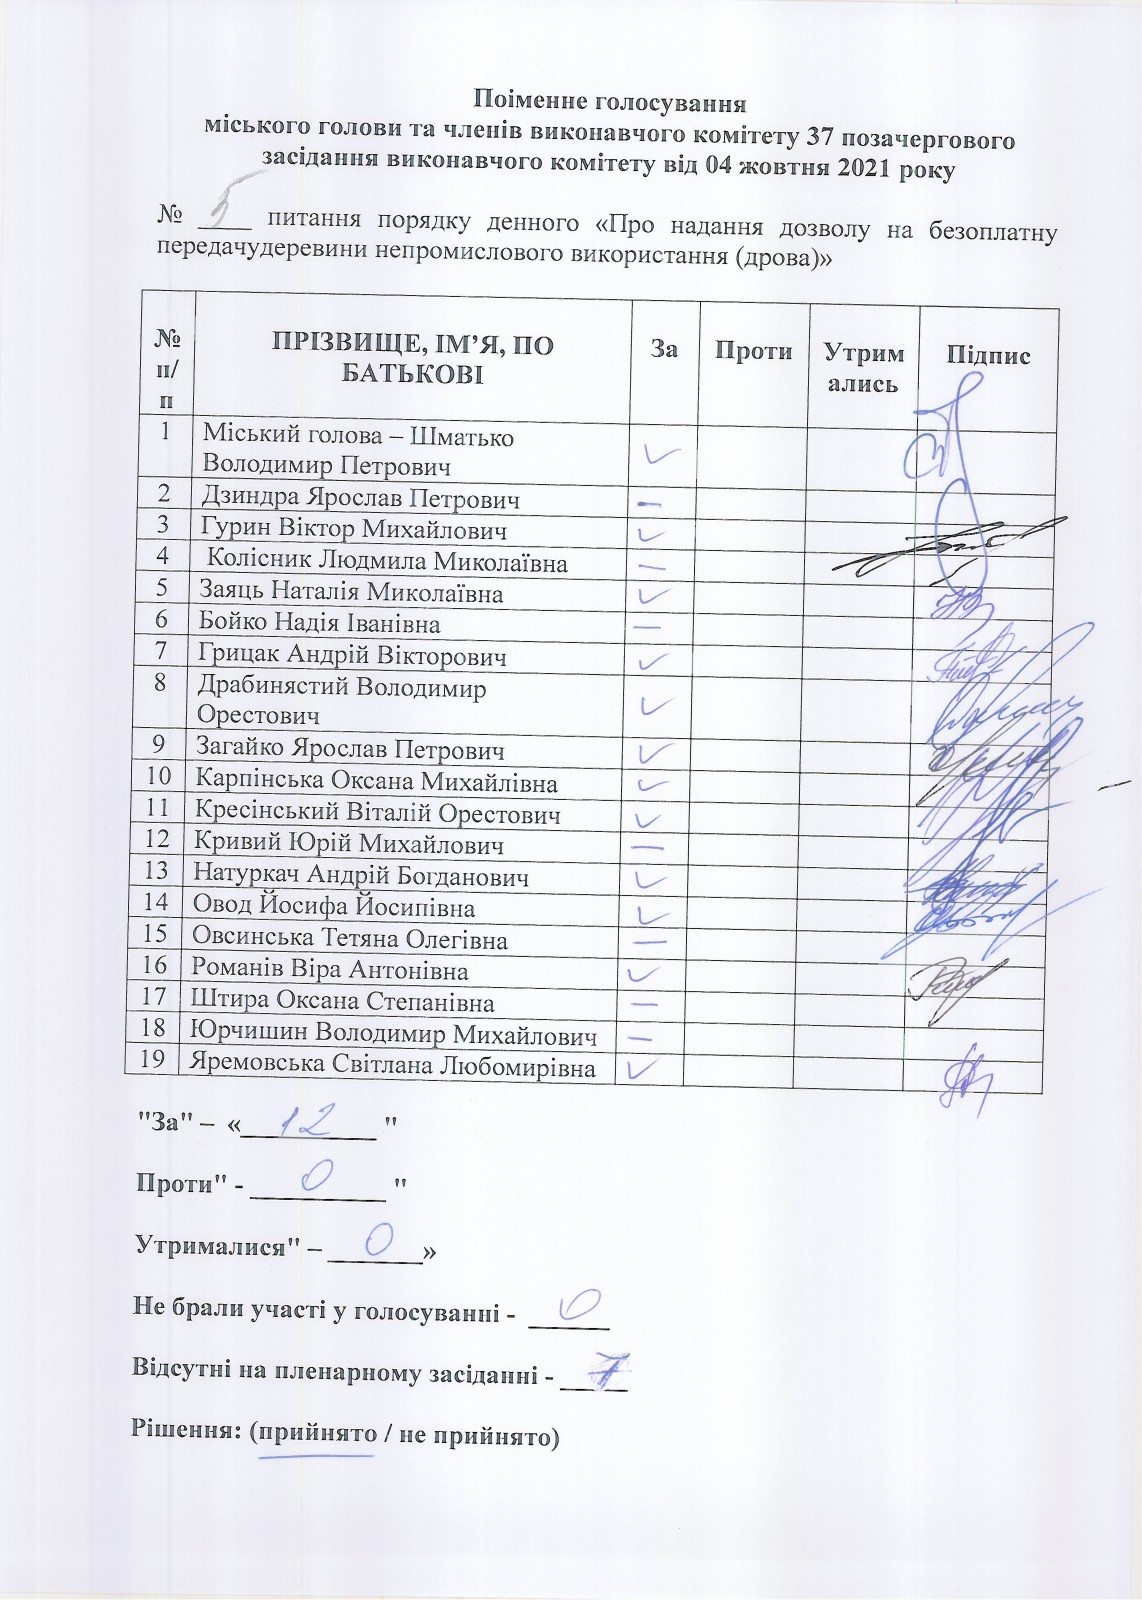 Поіменне голосування
міського голови та членів виконавчого комітету 37 позачергового
засідання виконавчого комітету від 04 жовтня 2021 року
№ 5 питання порядку денного «Про надання дозволу на безоплатну
передачудеревини непромислового використання (дрова)»
№ п/п ПРІЗВИЩЕ, ІМ’Я, ПО БАТЬКОВІ За Проти Утрим ались Підпис
1 Міський голова – Шматько
Володимир Петрович ✓
2 Дзиндра Ярослав Петрович –
3 Гурин Віктор Михайлович ✓
4 Колісник Людмила Миколаївна –
5 Заяць Наталія Миколаївна ✓
6 Бойко Надія Іванівна –
7 Грицак Андрій Вікторович ✓
8 Драбинястий Володимир
Орестович ✓
9 Загайко Ярослав Петрович ✓
10 Карпінська Оксана Михайлівна ✓
11 Кресінський Віталій Орестович ✓
12 Кривий Юрій Михайлович –
13 Натуркач Андрій Богданович ✓
14 Овод Йосифа Йосипівна ✓
15 Овсинська Тетяна Олегівна –
16 Романів Віра Антонівна ✓
17 Штира Оксана Степанівна –
18 Юрчишин Володимир Михайлович –
19 Яремовська Світлана Любомирівна ✓
"За" – « 12 "
Проти" - 0 "
Утрималися" – 0 »
Не брали участі у голосуванні - 0
Відсутні на пленарному засіданні - 7
Рішення: (прийнято / не прийнято)